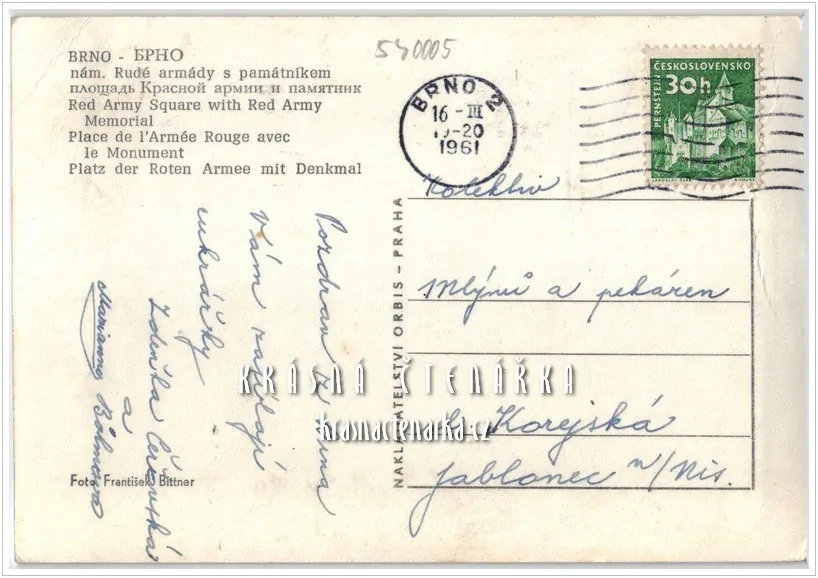 540005
BRNO - БРНО
nám. Rudé armády s památníkem
площадь Красной армии и памятник
Red Army Square with Red Army
Memorial
Place de l'Armée Rouge avec
le Monument
Platz der Roten Armee mit Denkmal
BRNO 2
16 - III
19-20
1961
ČESKOSLOVENSKO
30h
PERNŠTEJN
Pozdrav z Brna
Vám zasílají
cukrářky
Zdeňka
a
Marianna
NAKLADATELSTVÍ ORBIS – PRAHA
Kolektiv
Mlýnů a pekáren
Korejská
Jablonec n/Nis.
KRÁSNÁ ČTENÁŘKA
krasnactenarka.cz
Foto František Bittner